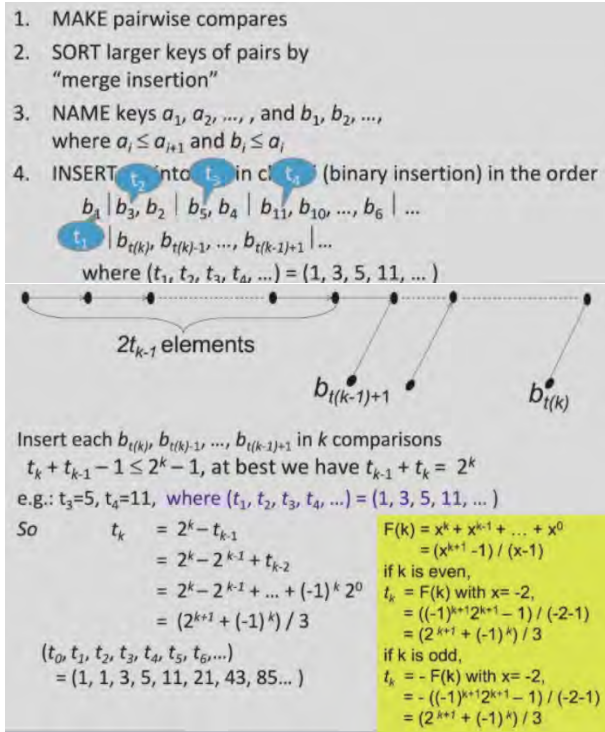 1. MAKE pairwise compares
2. SORT larger keys of pairs by
"merge insertion"
3. NAME keys a₁, a₂, ..., , and b₁, b₂, ...,
where aᵢ ≤ aᵢ₊₁ and bᵢ ≤ aᵢ
4. INSERT into in c (binary insertion) in the order
t₂ t₃ t₄
b₁ | b₃, b₂ | b₅, b₄ | b₁₁, b₁₀, ..., b₆ | ...
t₁ | b_t(k), b_t(k)-1, ..., b_t(k-1)+1 | ...
where (t₁, t₂, t₃, t₄, ...) = (1, 3, 5, 11, ... )
2t_k-1 elements
b_t(k-1)+1 b_t(k)
Insert each b_t(k), b_t(k)-1, ..., b_t(k-1)+1 in k comparisons
t_k + t_k-1 – 1 ≤ 2^k – 1, at best we have t_k-1 + t_k = 2^k
e.g.: t₃=5, t₄=11, where (t₁, t₂, t₃, t₄, ...) = (1, 3, 5, 11, ... )
So t_k = 2^k – t_k-1
= 2^k – 2^k-1 + t_k-2
= 2^k – 2^k-1 + ... + (-1)^k 2⁰
= (2^k+1 + (-1)^k) / 3
(t₀, t₁, t₂, t₃, t₄, t₅, t₆,...)
= (1, 1, 3, 5, 11, 21, 43, 85... )
F(k) = x^k + x^k-1 + ... + x⁰
= (x^k+1 -1) / (x-1)
if k is even,
t_k = F(k) with x= -2,
= ((-1)^k+1 2^k+1 – 1) / (-2-1)
= (2^k+1 + (-1)^k) / 3
if k is odd,
t_k = - F(k) with x= -2,
= - ((-1)^k+1 2^k+1 – 1) / (-2-1)
= (2^k+1 + (-1)^k) / 3